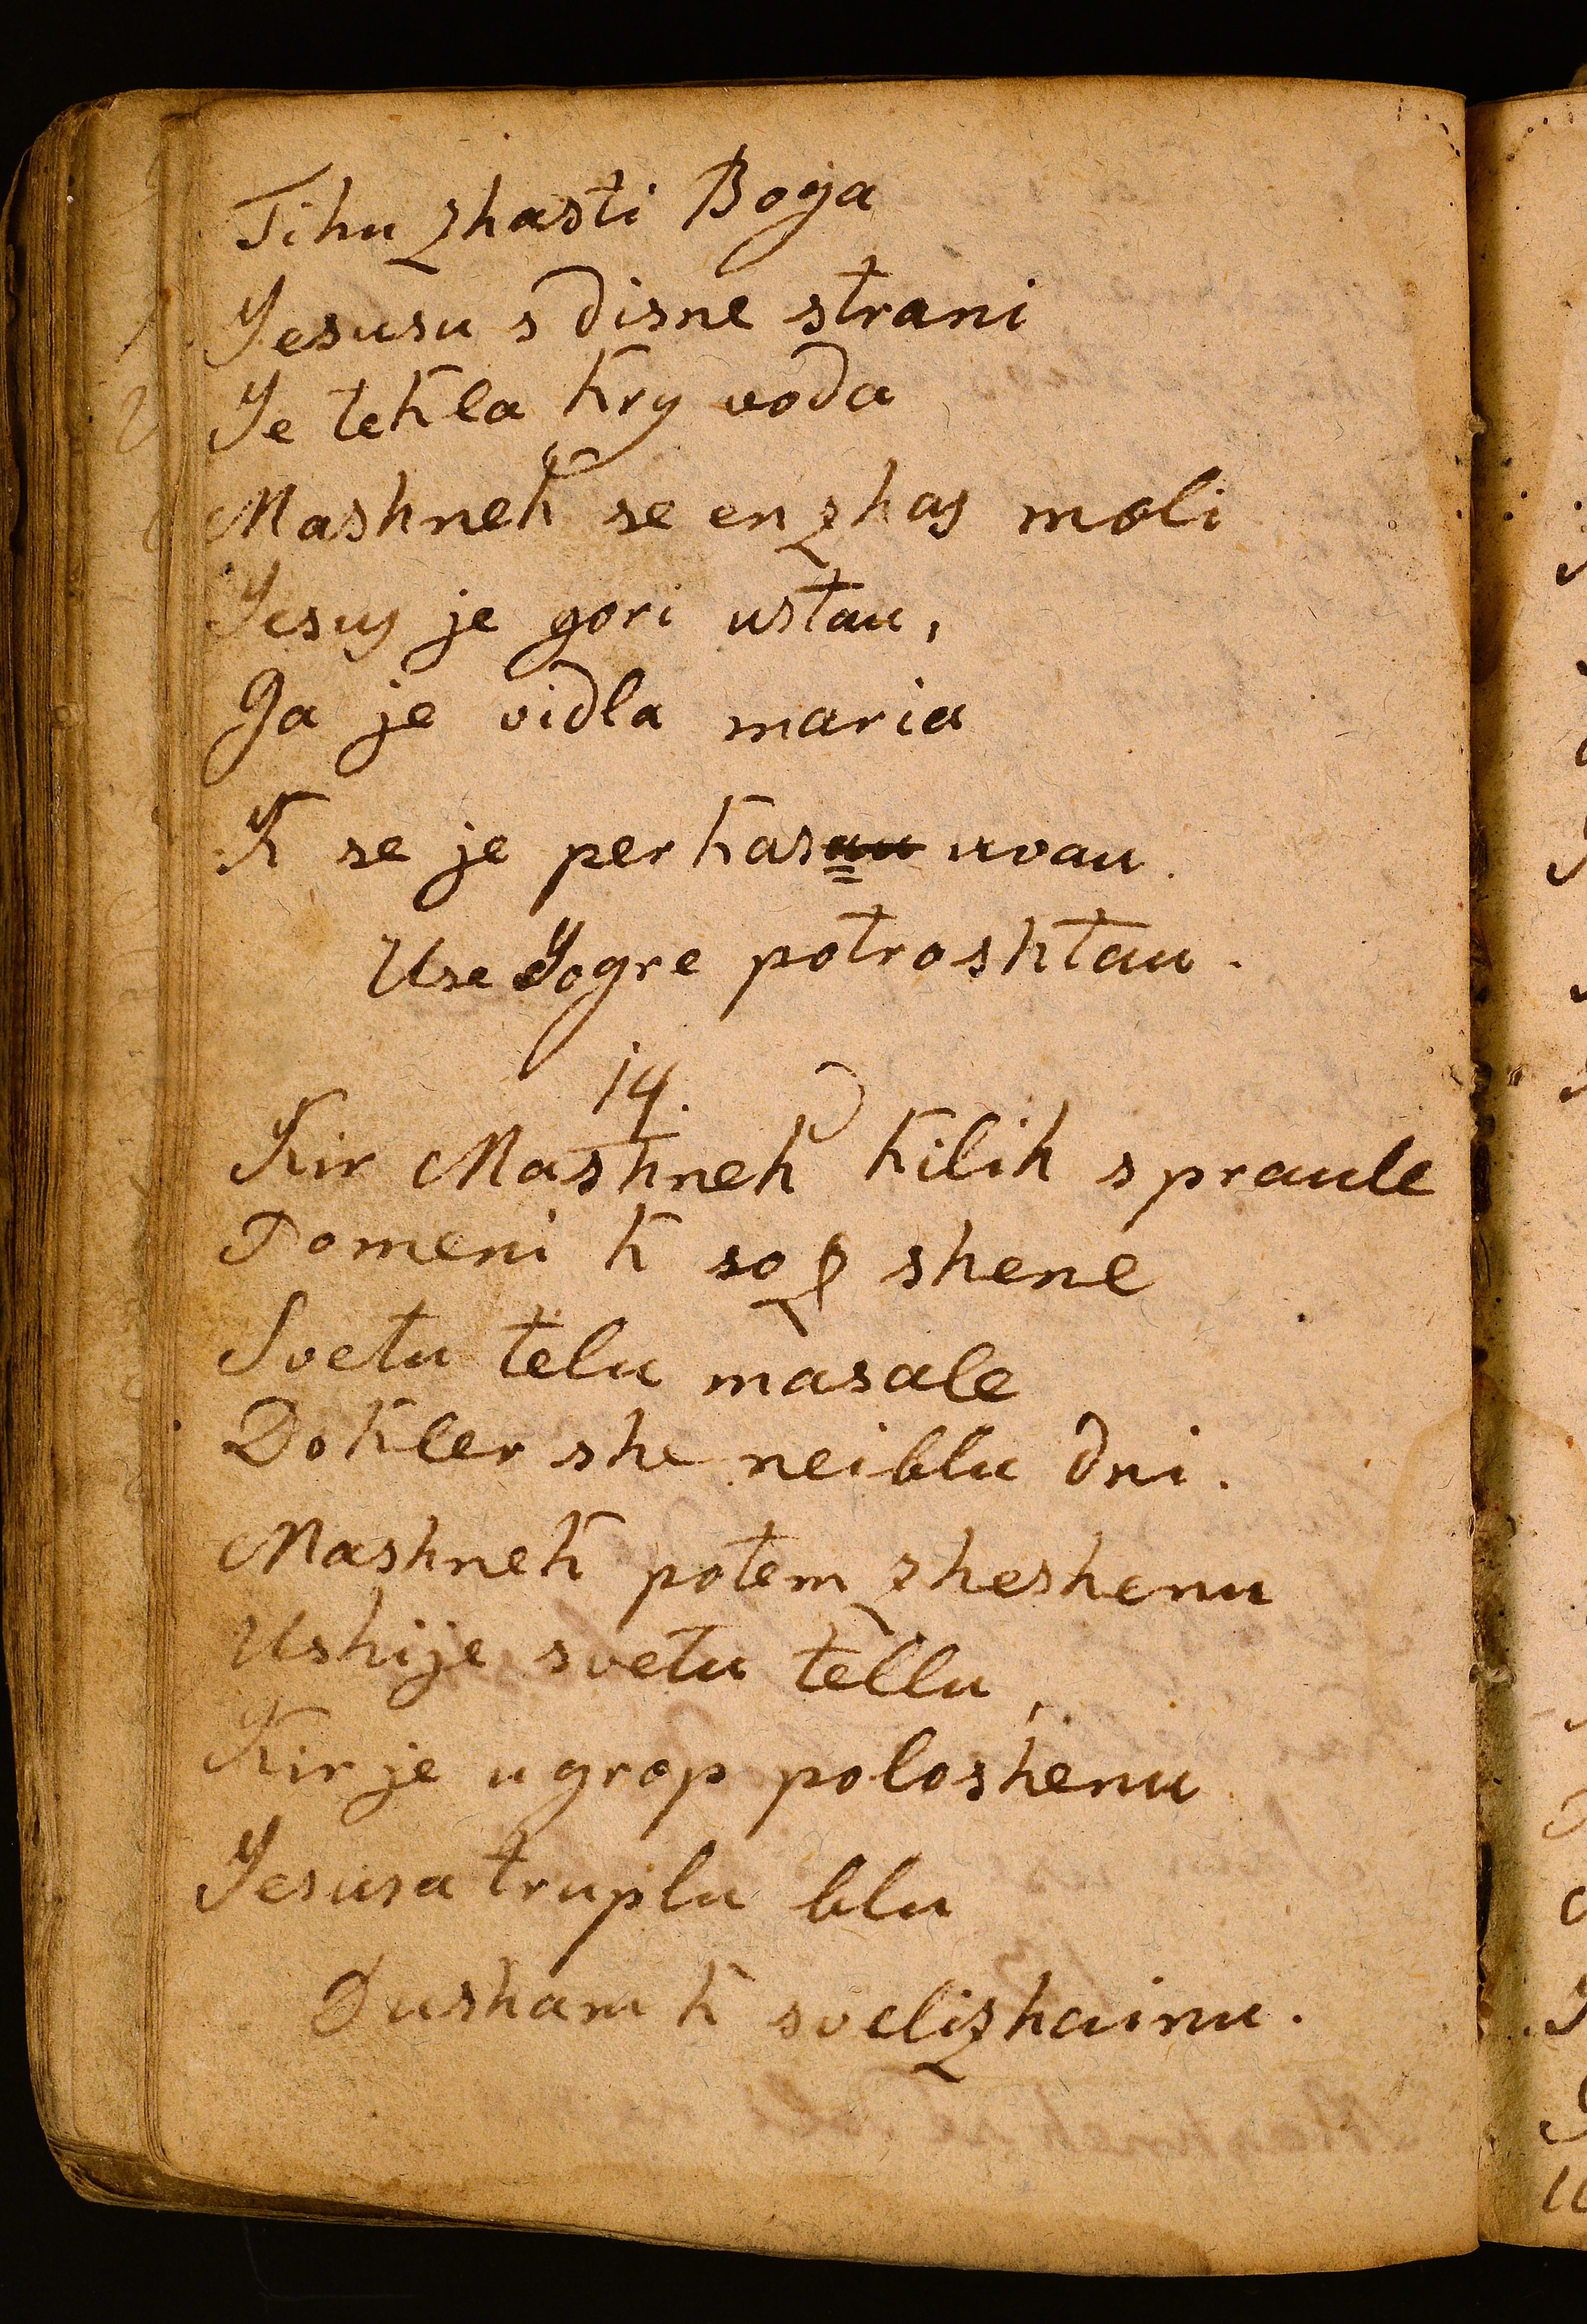 Tihu zhasti Boga
Jesusu s disne strani
Je tekla kry voda
Mashnek se en zhas moli
Jesus je gori ustau,
Ga je vidla maria
K se je per kasau uvau.
Use Jogre potroshtau.
14.
Kir Mashnek kilih spraule
Pomeni k so z shene
Svetu telu masale
Dokler she nei blu dni.
Mashnek potem zheshenu
Ushije svetu tellu,
Kir je u grop poloshenu
Jesusa truplu blu
Dusham k svelizhainu.